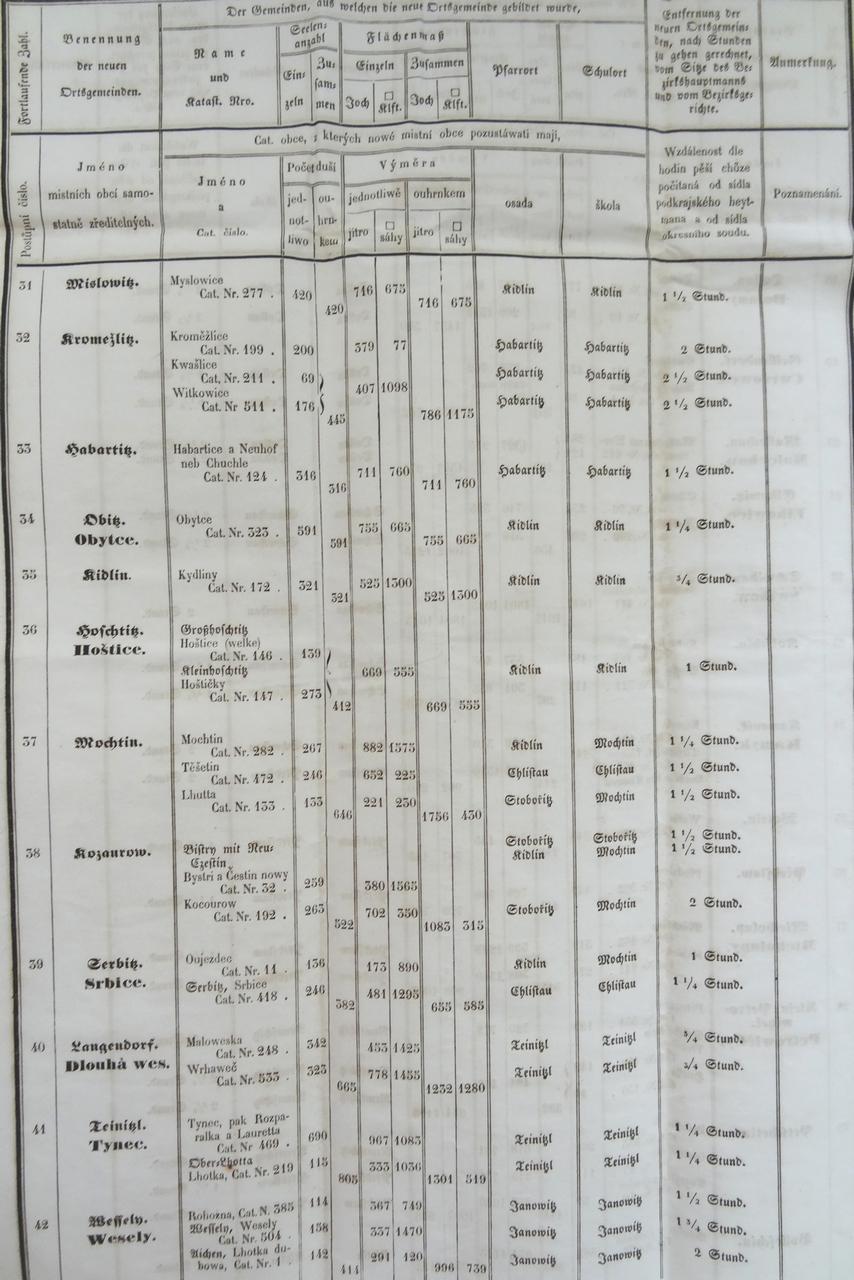 Der Gemeinden, aus welchen die neue Ortsgemeinde gebildet wurde,
Fortlaufende Zahl.
Benennung
der neuen
Ortsgemeinden.
Name
und
Katast. Nro.
Seelen-
anzahl
Ein-
zeln
Zu-
sam-
men
Flächenmaß
Einzeln
Zusammen
Joch
□
Klft.
Joch
□
Klft.
Pfarrort
Schulort
Entfernung der
neuen Ortsgemein-
den, nach Stunden
zu gehen gerechnet,
vom Sitze des Be-
zirkshauptmanns
und vom Bezirksge-
richte.
Anmerkung.
Cat. obce, z kterých nowé místní obce pozustáwati mají,
Postupní číslo.
Jméno
místních obcí samo-
statně zředitelných.
Jméno
a
Cat. číslo.
Počet duší
jed-
not-
liwo
ou-
hrn-
kem
Výměra
jednotliwě
ouhrnkem
jitro
□
sáhy
jitro
□
sáhy
osada
škola
Wzdálenost dle
hodin pěší chůze
počítaná od sídla
podkrajského heyt-
mana a od sídla
okresního soudu.
Poznamenání.
31 Mislowitz. Myslowice
Cat. Nr. 277 . 420 716 675 Kidlin Kidlin 1 1/2 Stund.
420 716 675
32 Kromežlitz. Kroměžlice
Cat. Nr. 199 . 200 379 77 Habartitz Habartitz 2 Stund.
Kwašlice
Cat. Nr. 211 . 69 Habartitz Habartitz 2 1/2 Stund.
Witkowice 407 1098
Cat. Nr 511 . 176 Habartitz Habartitz 2 1/2 Stund.
445 786 1175
33 Habartitz. Habartice a Neuhof
neb Chuchle
Cat. Nr. 124 . 316 711 760 Habartitz Habartitz 1 1/2 Stund.
316 711 760
34 Obitz. Obytce
Obytce. Cat. Nr. 323 . 591 755 665 Kidlin Kidlin 1 1/4 Stund.
591 755 665
35 Kidlin. Kydliny
Cat. Nr. 172 . 321 525 1300 Kidlin Kidlin 3/4 Stund.
321 525 1300
36 Hoschtitz. Großhoschtitz
Hoštice. Hoštice (welke)
Cat. Nr. 146 . 139
Kleinhoschtitz 669 555 Kidlin Kidlin 1 Stund.
Hoštičky
Cat. Nr. 147 . 273
412 669 555
37 Mochtin. Mochtin
Cat. Nr. 282 . 267 882 1575 Kidlin Mochtin 1 1/4 Stund.
Těšetin
Cat. Nr. 472 . 246 652 225 Chlistau Chlistau 1 1/2 Stund.
Lhutta
Cat. Nr. 133 . 133 221 230 Stobořitz Mochtin 1 1/2 Stund.
646 1756 430
Stobořitz Stobořitz 1 1/2 Stund.
38 Kozaurow. Bistry mit Neu- Kidlin Mochtin 1 1/2 Stund.
Czestin,
Bystrí a Čestin nowy
Cat. Nr. 32 . 259 380 1565
Kocourow
Cat. Nr. 192 . 263 702 350 Stobořitz Mochtin 2 Stund.
522 1083 315
39 Serbitz. Oujezdec
Srbice. Cat. Nr. 11 . 136 173 890 Kidlin Mochtin 1 Stund.
Serbitz, Srbice
Cat. Nr. 418 . 246 481 1295 Chlistau Chlistau 1 1/4 Stund.
382 655 585
40 Langendorf. Maloweska
Dlouhá wes. Cat. Nr. 248 . 342 453 1425 Teinitzl Teinitzl 3/4 Stund.
Wrhaweč
Cat. Nr. 533 . 323 778 1455 Teinitzl Teinitzl 3/4 Stund.
665 1232 1280
41 Teinitzl. Tynec, pak Rozpa-
Tynec. ralka a Lauretta
Cat. Nr 469 . 690 967 1083 Teinitzl Teinitzl 1 1/4 Stund.
Ober-Lhotta
Lhotka, Cat. Nr. 219 115 333 1036 Teinitzl Teinitzl 1 1/4 Stund.
805 1301 519
42 Wesseln. Rohozna, Cat. N. 385 114 367 749 Janowitz Janowitz 1 1/2 Stund.
Wesely. Wesseln, Wesely
Cat. Nr. 504 . 158 337 1470 Janowitz Janowitz 1 3/4 Stund.
Aichen, Lhotka du-
bowa, Cat. Nr. 1 . 142 291 120 Janowitz Janowitz 2 Stund.
414 996 739